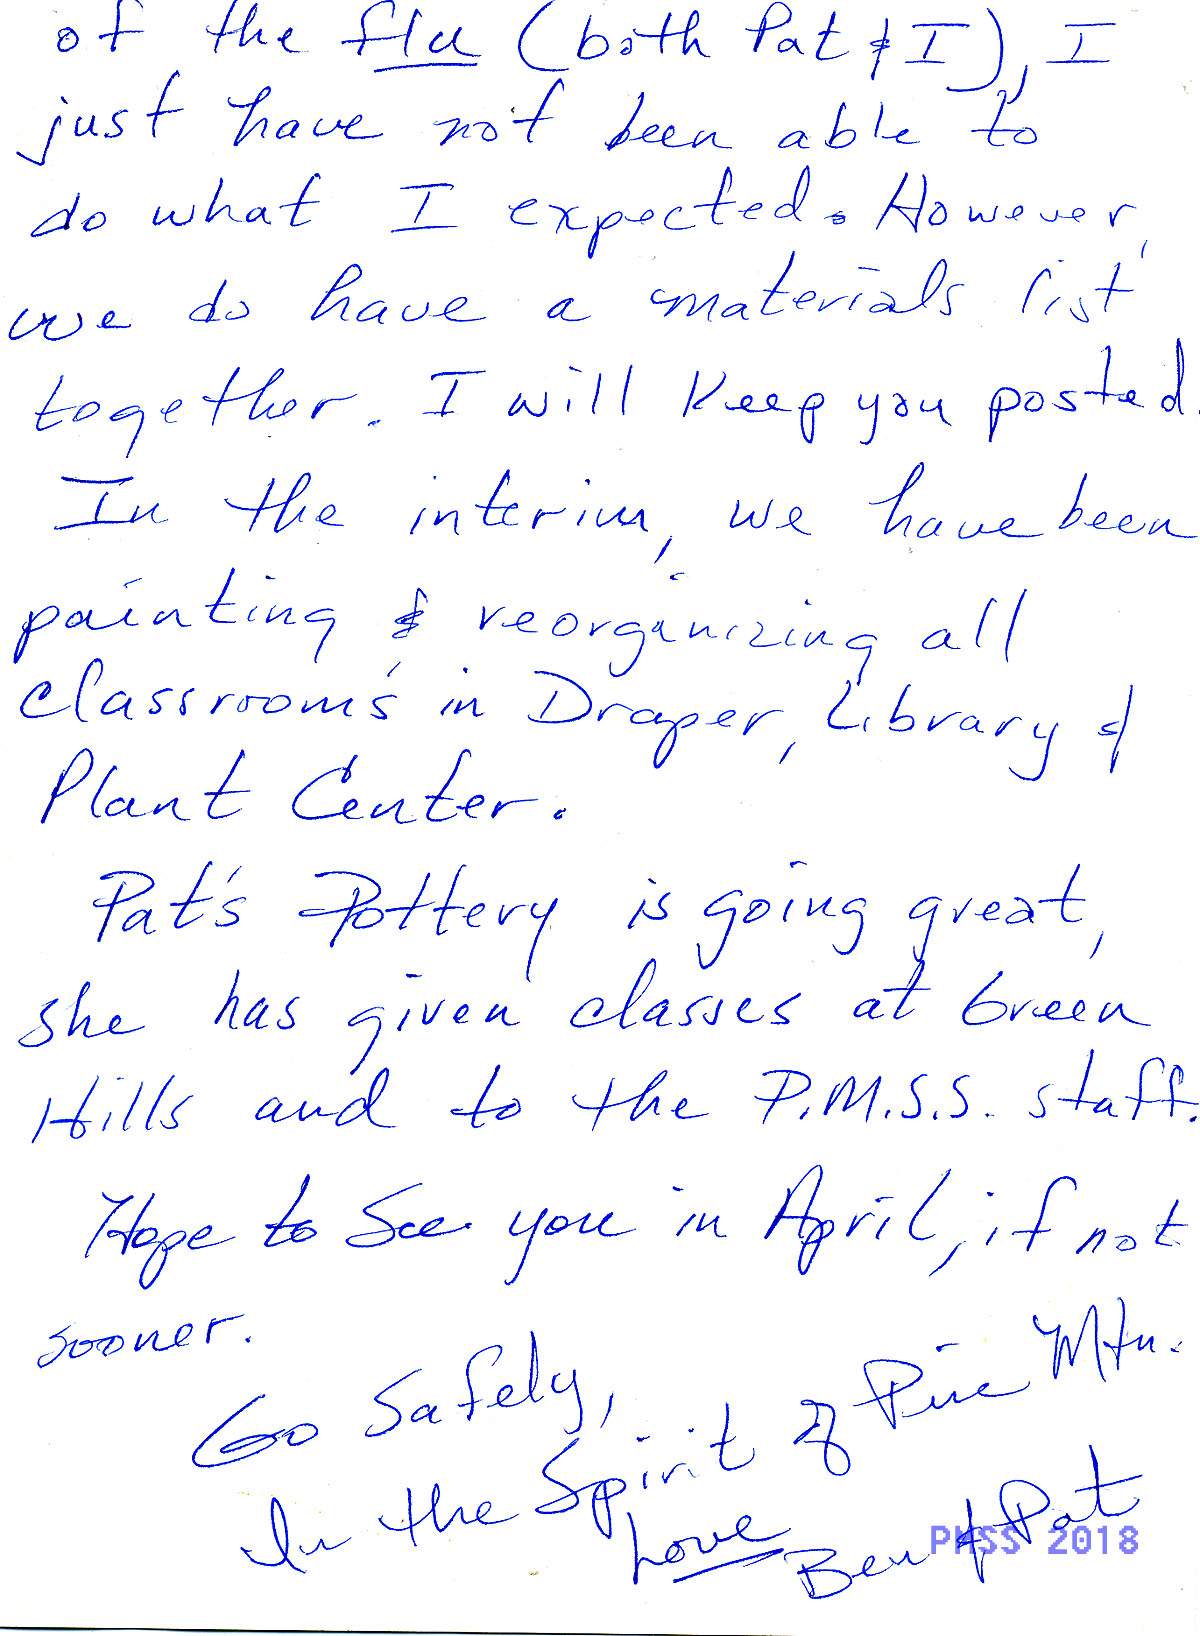 of the flu (both Pat & I), I
just have not been able to
do what I expected. However,
we do have a materials list
together. I will keep you posted.
In the interim, we have been
painting & reorganizing all
classrooms in Draper, Library &
Plant Center.
Pat's Pottery is going great,
she has given classes at Green
Hills and to the P.M.S.S. staff.
Hope to see you in April, if not
sooner.
Go Safely,
In the Spirit of Pine Mtn.
Love
Ben & Pat
PMSS 2018